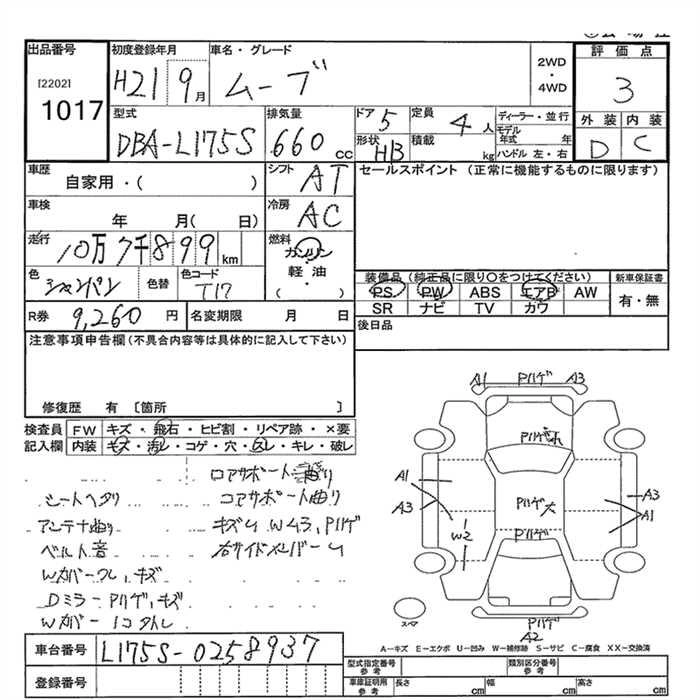 出品番号
[2202]
1017
初度登録年月
H21 9月
車名・グレード
ムーブ
2WD
・
4WD
評価点
3
外装 内装
D C
型式
DBA-L175S
排気量
660 cc
ドア 5
定員 4人
形状 HB
積載 kg
ディーラー・並行
モデル年式 年
ハンドル 左・右
車歴
自家用・( )
シフト AT
セールスポイント (正常に機能するものに限ります)
車検
年 月( 日)
冷房 AC
走行
10万7千899km
燃料
ガソリン
軽油
( )
色
シャンパン
色替
色コード
T17
装備品 (純正品に限り○をつけてください)
PS PW ABS エアB AW
SR ナビ TV カワ
新車保証書
有・無
R券 9,260円
名変期限 月 日
後日品
注意事項申告欄(不具合内容等は具体的に記入して下さい)
修復歴 有 [箇所 ]
検査員記入欄
FW キズ・飛石・ヒビ割・リペア跡・×要
内装 キズ・汚レ・コゲ・穴・スレ・キレ・破レ
ロアサポート曲り
シートヘタリ コアサポート曲り
アンテナ曲り キズ、W43、Pハゲ
ベルト音 右サイドメンバーム
Wカバークレ、キズ
Dミラー Pハゲ、キズ
Wカバー1コ欠レ
A1 Pハゲ A3
Pハゲ
A1
A3
W2
Pハゲ大
Pハゲ
A3
A1
スペア
Pハゲ
A2
A-キズ E-エクボ U-凹み W-補修跡 S-サビ C-腐食 XX-交換済
車台番号 L175S-0258937
登録番号
型式指定番号 参考
類別区分番号 参考
車庫証明用 参考
長さ cm 幅 cm 高さ cm